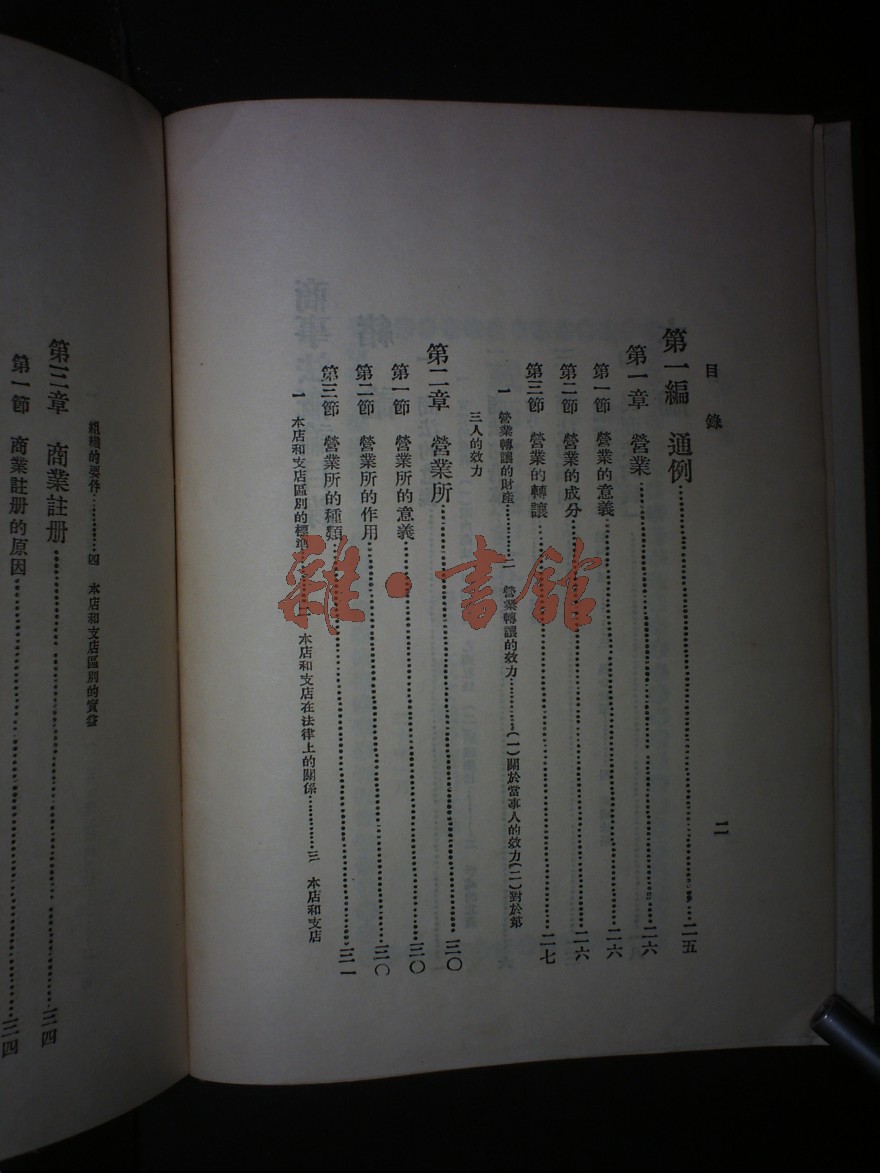 目錄
二
第一編　通例……二五
第一章　營業……二六
第一節　營業的意義……二六
第二節　營業的成分……二六
第三節　營業的轉讓……二七
一　營業轉讓的財產……二　營業轉讓的效力……(一)關於當事人的效力(二)對於第
三人的效力
第二章　營業所……三〇
第一節　營業所的意義……三〇
第二節　營業所的作用……三〇
第三節　營業所的種類……三一
一　本店和支店區別的標準……二　本店和支店在法律上的關係……三　本店和支店
組織的要件……四　本店和支店區別的實益
第三章　商業註册……三四
第一節　商業註册的原因……三四
雜·書館